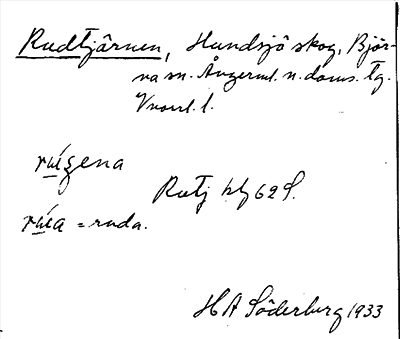 Rudtjärnen, Hundsjö skog, Björ-
na sn. Ångerml. n. doms. tg.
Vvoml. l.
Rutj hly 62 S.
= ruda.
HA Söderberg 1933